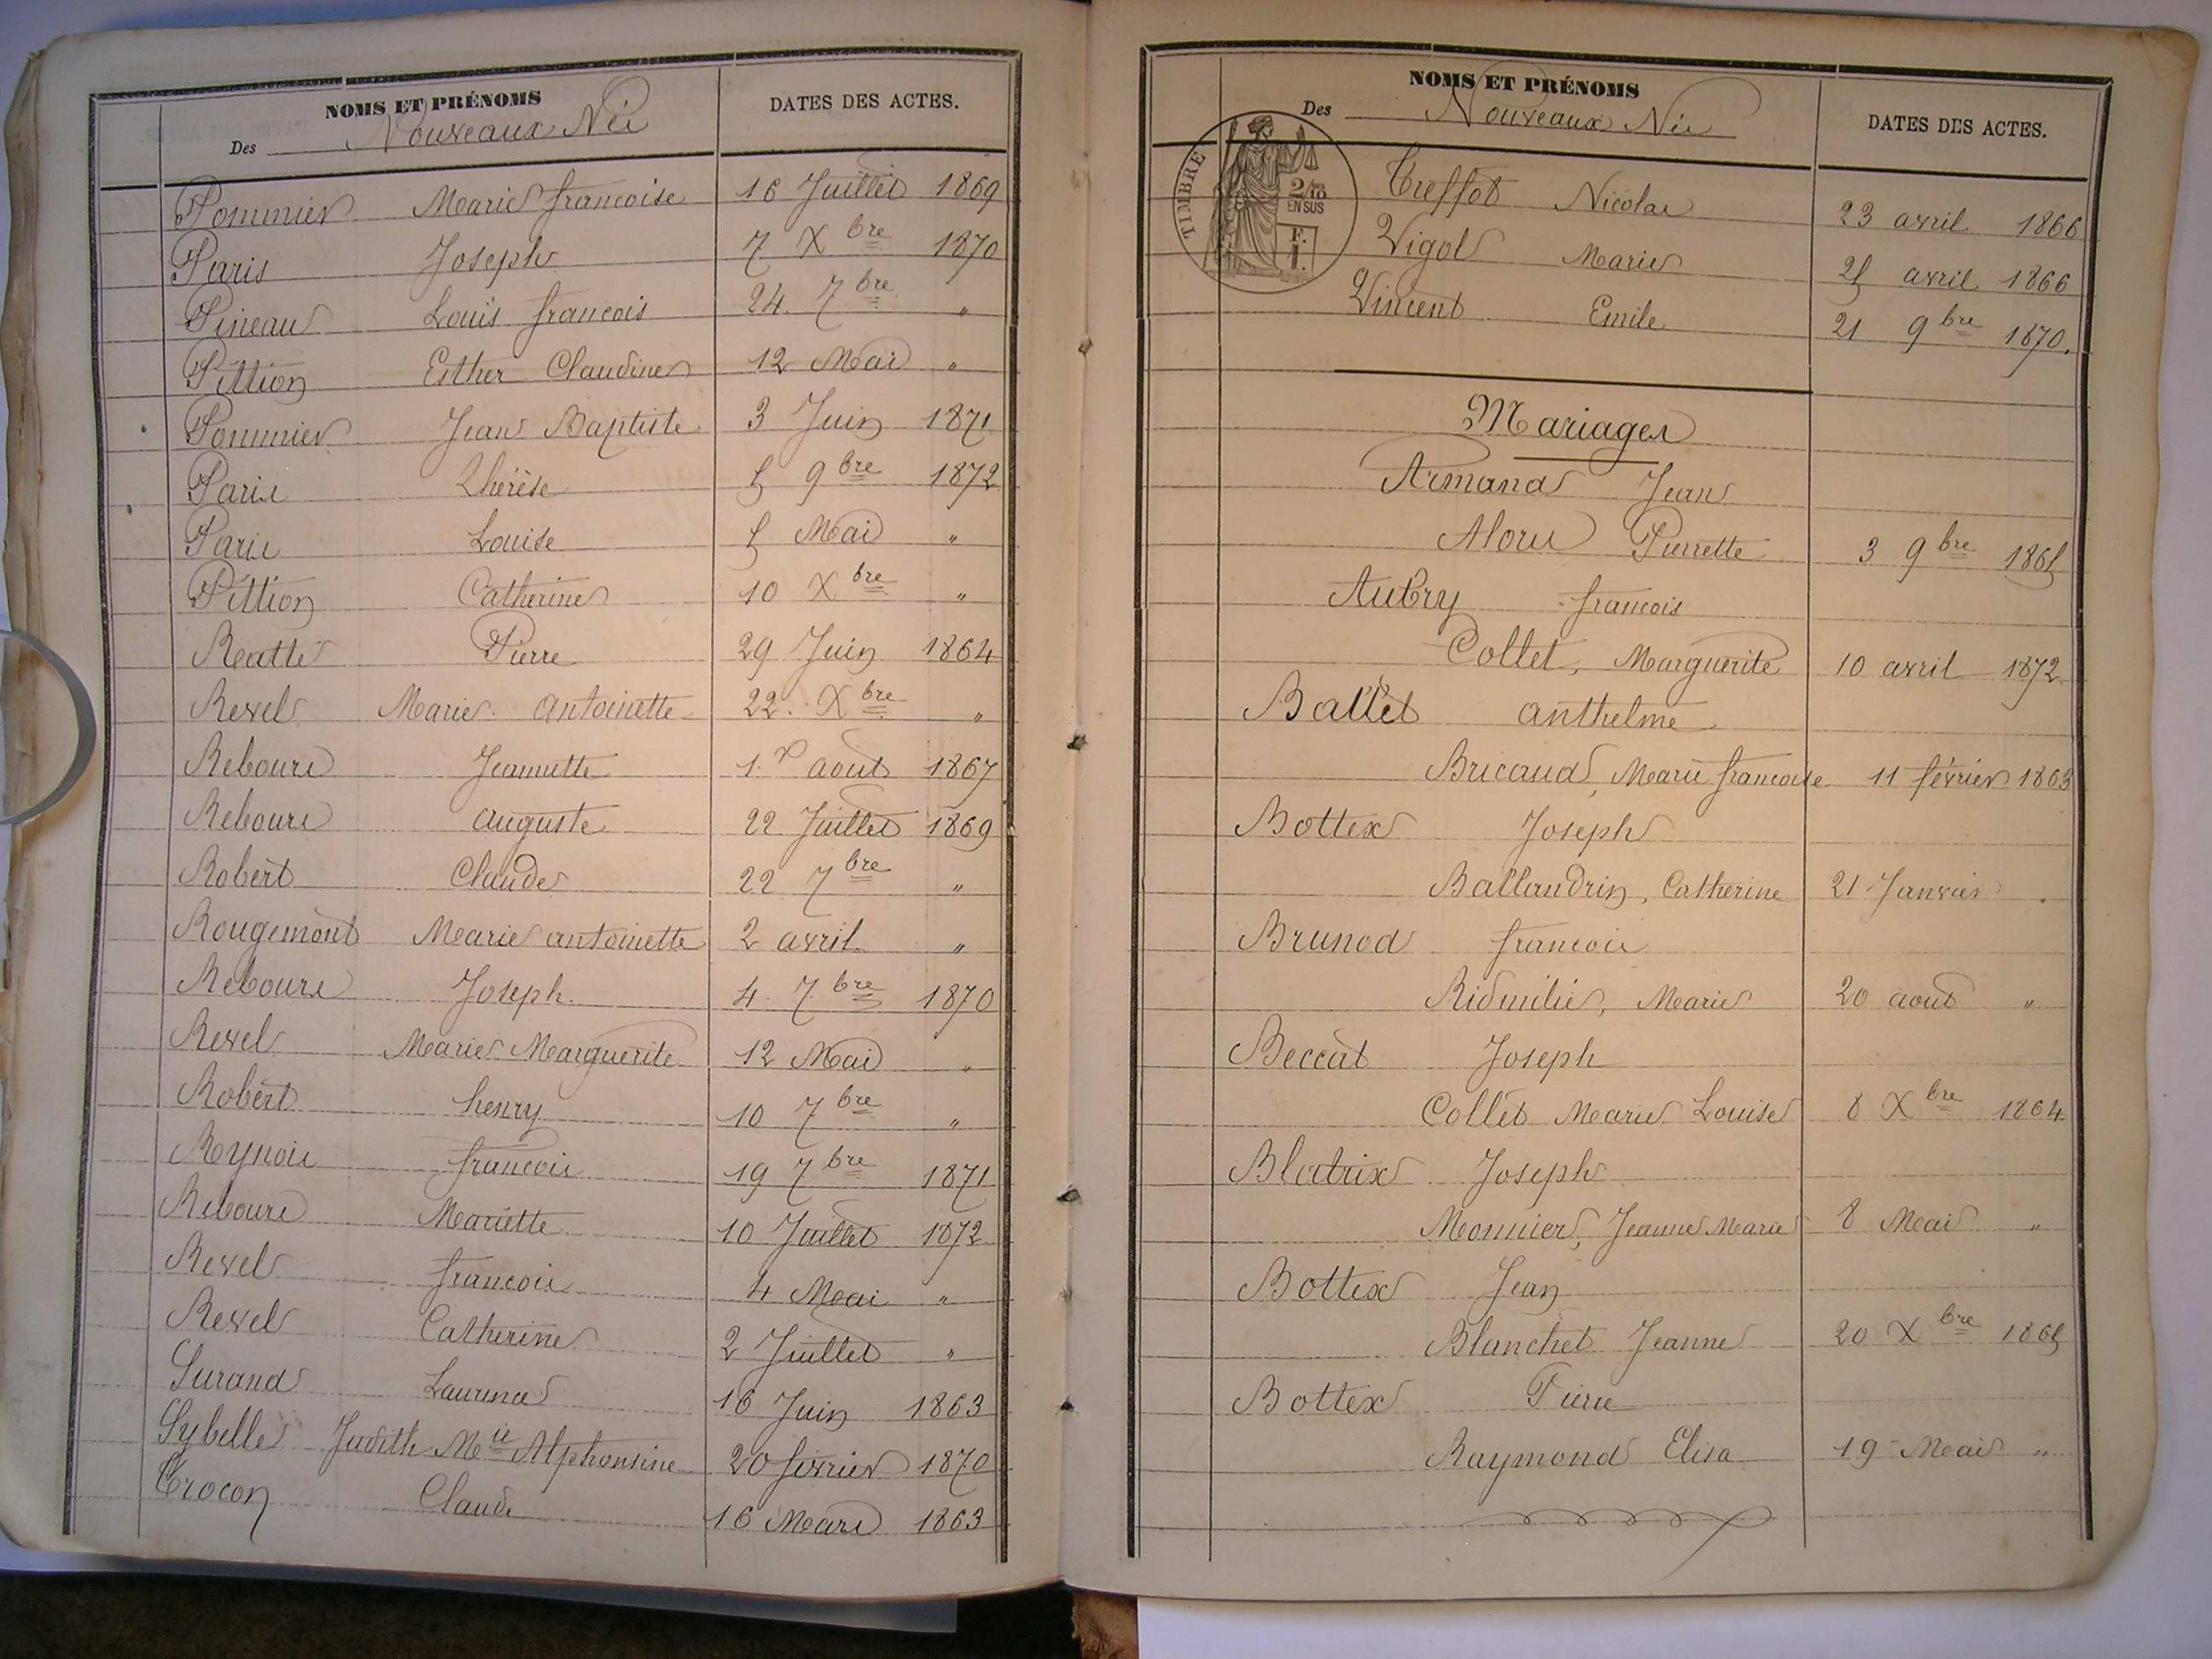 NOMS ET PRÉNOMS
Des Nouveaux Nés
DATES DES ACTES.
Pommier Marie francoise 16 Juillet 1869
Paris Joseph 7 Xbre 1870
Pineau Louis francois 24 7bre "
Pittion Esther Claudine 12 Mai "
Pommier Jean Baptiste 3 Juin 1871
Paris Thérèse 5 9bre 1872
Paris Louise 5 Mai "
Pittion Catherine 10 Xbre "
Reatte Pierre 29 Juin 1864
Revel Marie Antoinette 22 Xbre "
Rebours Jeannette 1.er aout 1867
Rebours auguste 22 Juillet 1869
Robert Claude 22 7bre "
Rougemont Marie antoinette 2 avril "
Rebours Joseph 4 7bre 1870
Revel Marie Marguerite 12 Mai "
Robert henry 10 7bre "
Reynois francois 19 7bre 1871
Rebours Mariette 10 Juillet 1872
Revel francois 4 Mai "
Revel Catherine 2 Juillet "
Surand Laurina 16 Juin 1863
Sybelle Judith Mie Alphonsine 20 fevrier 1870
Trocon Claude 16 Mars 1863
NOMS ET PRÉNOMS
Des Nouveaux Nés
DATES DES ACTES.
TIMBRE
2/10
EN SUS
F.
1.
Treffot Nicolas 23 avril 1866
Vigol Marie 25 avril 1866
Vincent Emile 21 9bre 1870.
Mariages
Armand Jean
Moris Pierrette 3 9bre 1865
Aubry francois
Collet, Marguerite 10 avril 1872
Ballet anthelme
Bricaud, Marie francoise 11 février 1863
Bottex Joseph
Ballandrin, Catherine 21 Janvier "
Brunod francois
Ridmilie, Marie 20 aout "
Beccat Joseph
Collet Marie Louise 8 Xbre 1864
Blatrix Joseph
Monnier, Jeanne Marie 8 Mai "
Bottex Jean
Blanchet Jeanne 20 Xbre 1865
Bottex Pierre
Raymond Elisa 19 Mai "